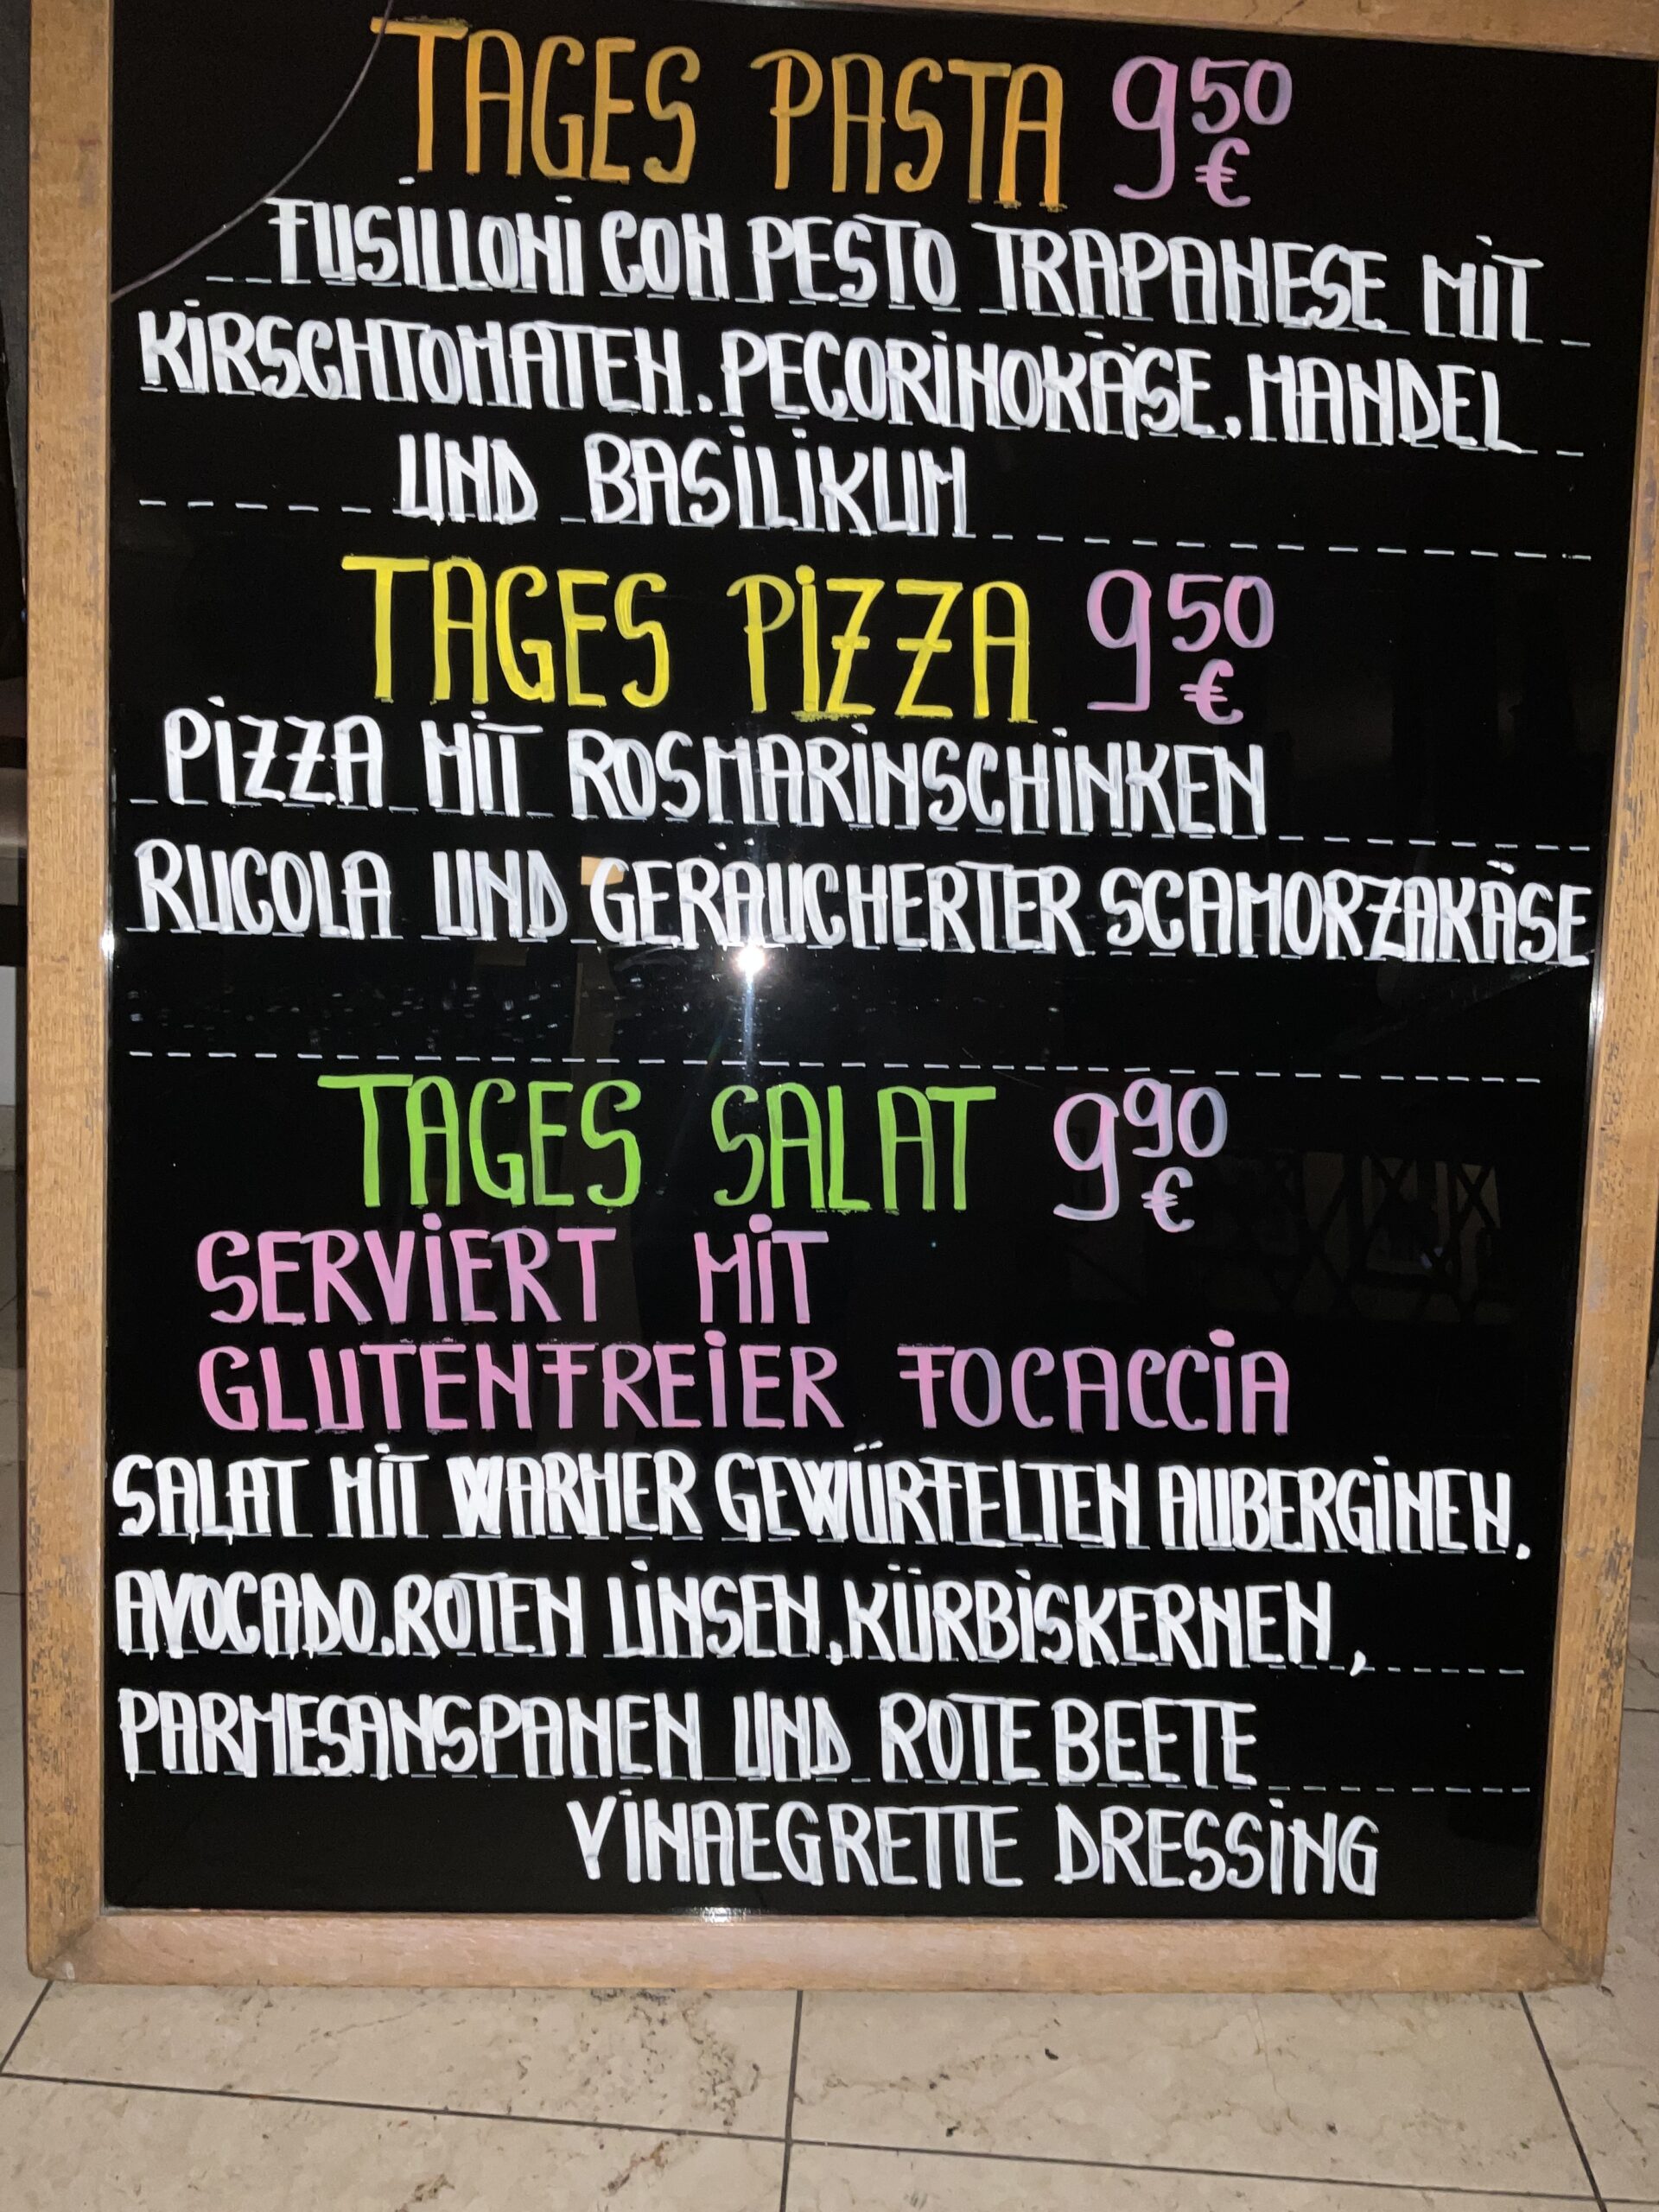 TAGES PASTA 9,50 €
FUSILLONI CON PESTO TRAPANESE MIT
KIRSCHTOMATEN, PECORINOKÄSE, MANDEL
UND BASILIKUM
TAGES PIZZA 9,50 €
PIZZA MIT ROSMARINSCHINKEN
RUCOLA UND GERÄUCHERTER SCAMORZAKÄSE
TAGES SALAT 9,90 €
SERVIERT MIT
GLUTENFREIER FOCACCIA
SALAT MIT WARMER GEWÜRFELTEN AUBERGINEN,
AVOCADO, ROTEN LINSEN, KÜRBISKERNEN,
PARMESANSPANEN UND ROTE BEETE
VINAEGRETTE DRESSING